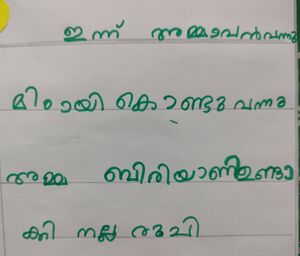 ഇന്ന് അമ്മാവൻവന്നു
മിഠായി കൊണ്ടുവന്നു
അമ്മ ബിരിയാണിഉണ്ടാ
ക്കി നല്ല രുചി